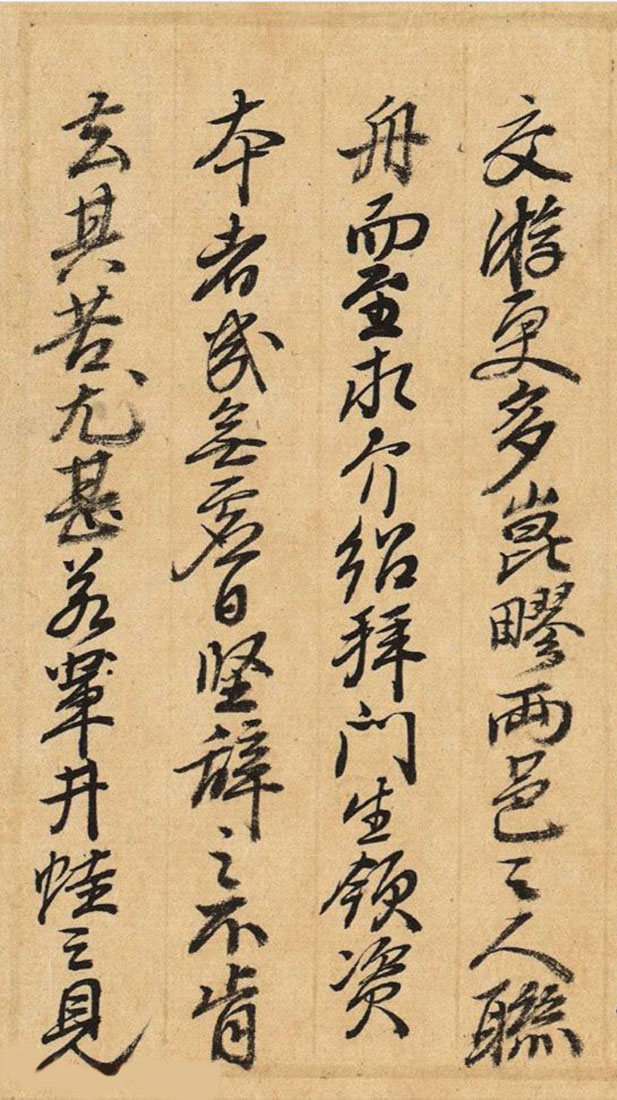 交游更多崑疁兩邑之人聯
舟而至求介紹拜門生領資
本者幾無虛日堅辭之不肯
去其苦尤甚若輩井蛙之見